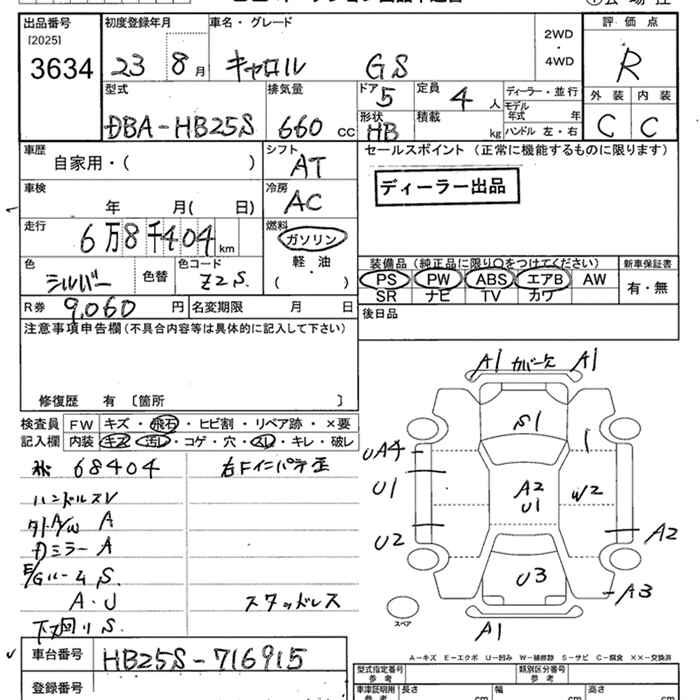 出品番号 初度登録年月 車名・グレード 2WD ・ 4WD 評価点
[2025]
3634 23 8月 キャロル GS R
型式 排気量 ドア 5 定員 4人 ディーラー・並行 外装 内装
DBA-HB25S 660 cc 形状 HB 積載 kg モデル年式 年 C C
ハンドル 左・右
車歴 自家用・( ) シフト AT セールスポイント (正常に機能するものに限ります)
車検 年 月( 日) 冷房 AC ディーラー出品
走行 6万8千404km 燃料 ガソリン
軽・油
( )
色 シルバー 色替 色コード Z2S 装備品 (純正品に限り○をつけてください) 新車保証書
PS PW ABS エアB AW 有・無
SR ナビ TV カワ
R券 9,060円 名変期限 月 日 後日品
注意事項申告欄 (不具合内容等は具体的に記入して下さい)
修復歴 有 〔箇所 〕
検査員 FW キズ・飛石・ヒビ割・リペア跡・×要
記入欄 内装 キズ・汚レ・コゲ・穴・スレ・キレ・破レ
68404 右Fインパネ歪
ハンドルスレ
外A/W A
Dミラー A
E/Gルーム S.
A・U スタッドレス
下廻り S.
A1 カバー欠 A1
S1
UA4
U1 A2 U1 W2
U2 A2
U3 A3
スペア A1
A-キズ E-エクボ U-凹み W-補修跡 S-サビ C-腐食 XX-交換済
車台番号 HB25S-716915
登録番号
型式指定番号 参考 類別区分番号 参考
車庫証明用 参考 長さ cm 幅 cm 高さ cm